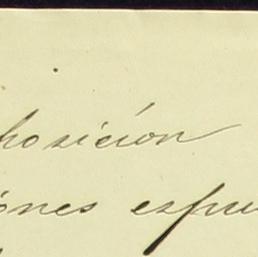 posicion
ones espu